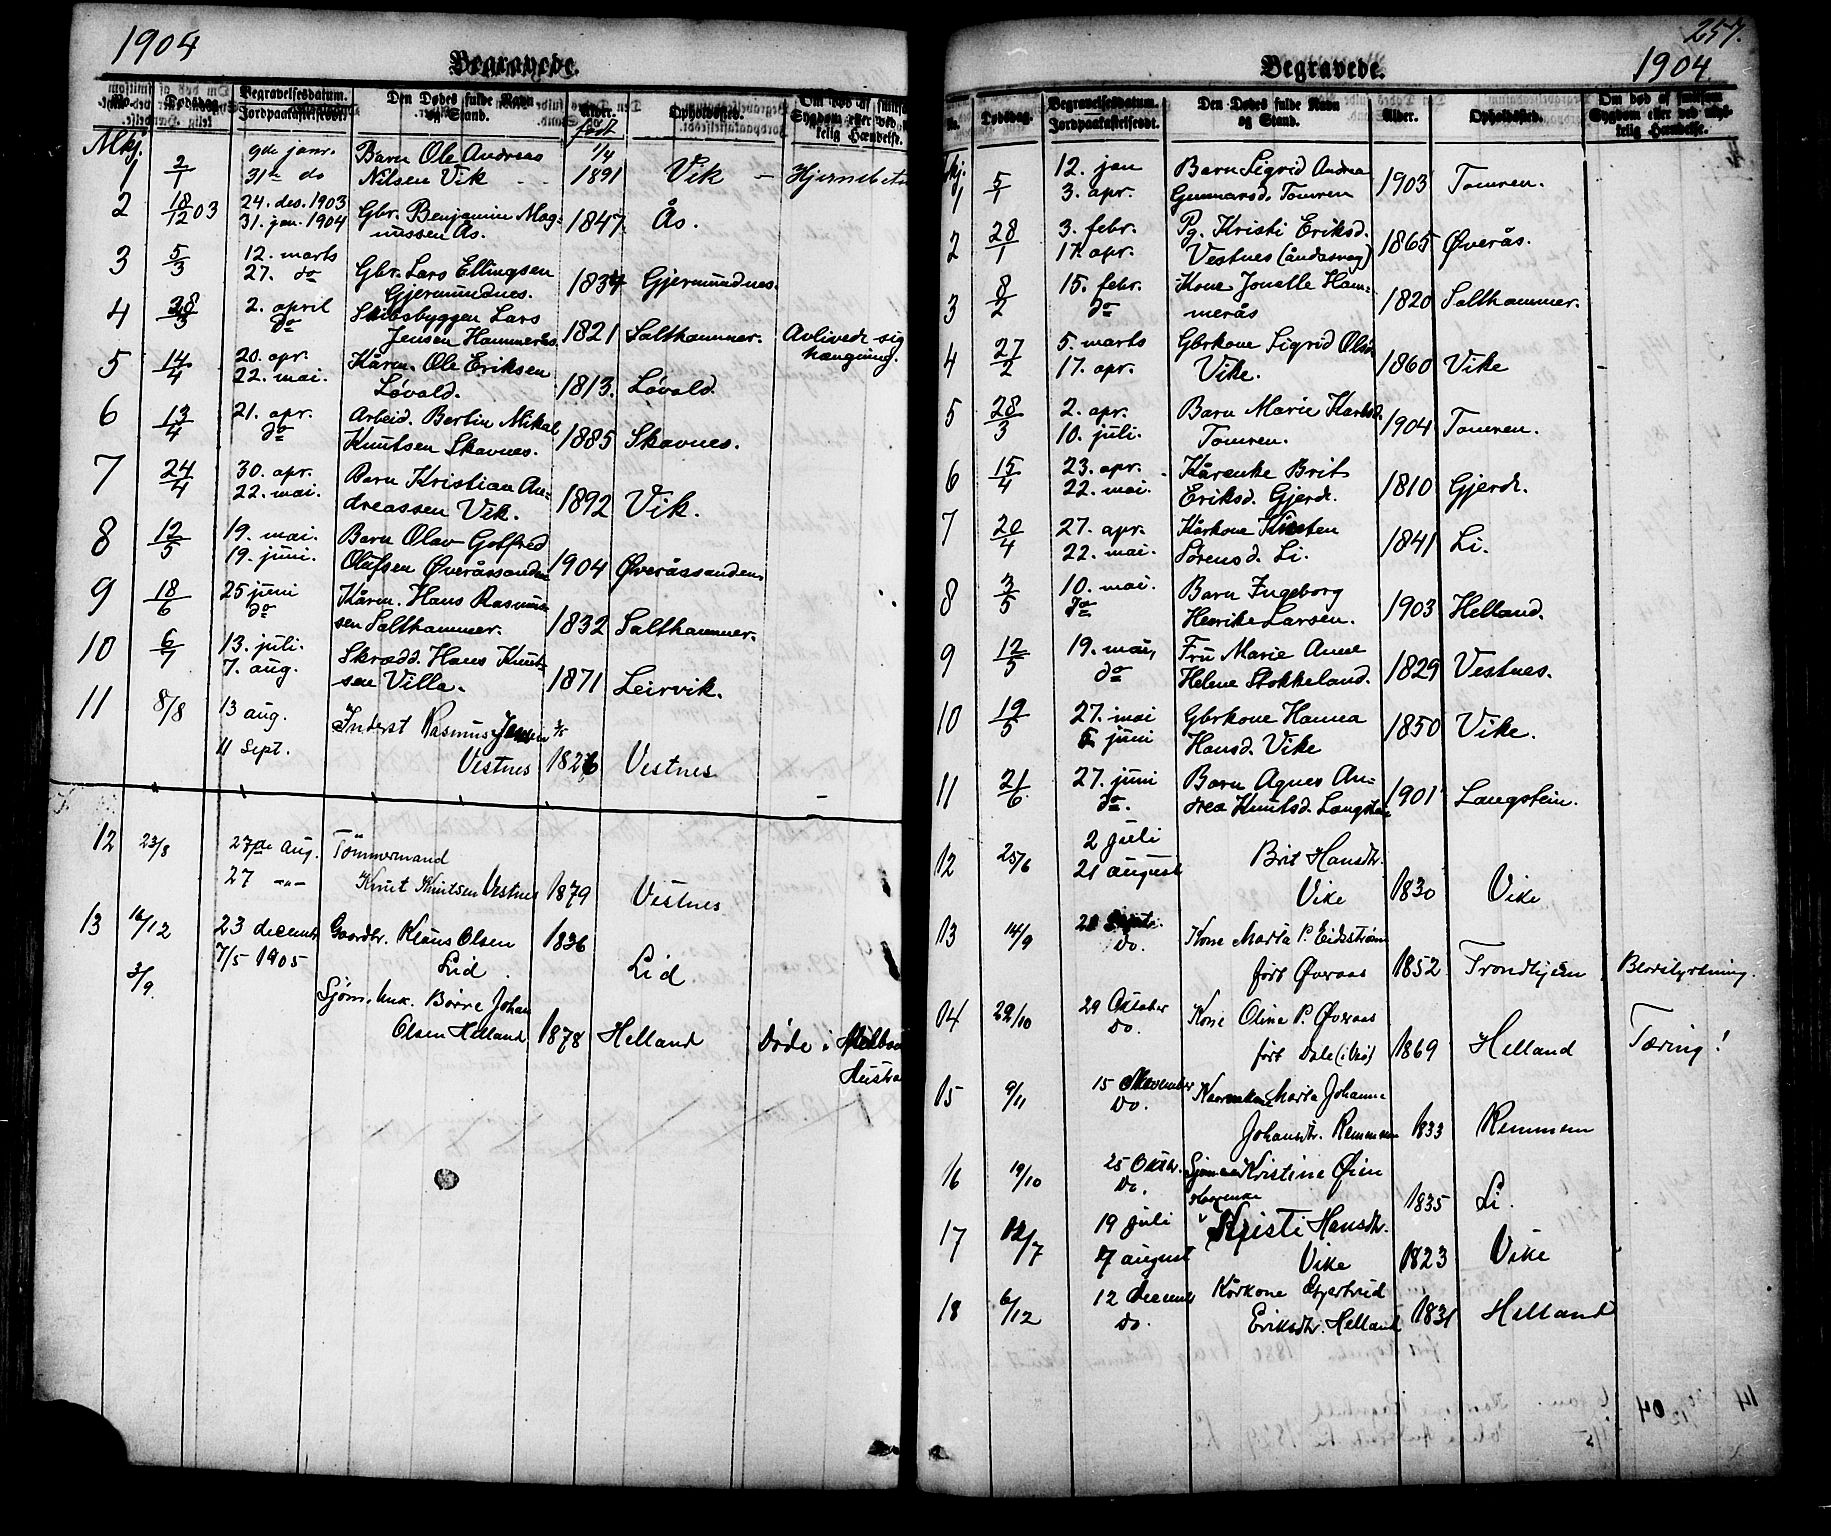 1904
Begravede.
No.
Dødsdag.
Begravelsesdatum.
Jordpaakastelsesdt.
Den Dødes fulde Navn
og Stand.
Alder.
født
Opholdssted.
Om død af smitsom
Sygdom eller ved ulyk-
kelig Hændelse.
Mkj.
1 2/1 9de janr. Barn Ole Andreas 1/4
31te do Nilsen Vik 1891 Vik - Hjernebetæ
2 18/12 03 24. des. 1903 Gbr. Benjamin Mag-
31. jan. 1904 nussen Ås. 1847. Ås.
3 5/3 12. marts Gbr. Lars Ellingsen
27. do Gjermundnes. 1834 Gjermundnes.
4 28/3 2. april Skibsbyggen Lars
do Jensen Hammerås. 1821 Salthammer. Avlivede sig
hængning.
5 14/4 20. apr. Kårm. Ole Eriksen
22. mai. Løvold. 1813. Løvold.
6 13/4 21. apr. Arbeid. Bertin Mikal
do Knutsen Skavnes. 1885 Skavnes.
7 24/4 30. apr. Barn Kristian An-
22. mai. dreassen Vik. 1892 Vik.
8 12/5 19. mai. Barn Olav Gotfred
19. juni. Olufsen Øveråssanden 1904 Øveråssanden
9 18/6 25 juni Kårm. Hans Rasmus-
do sen Salthammer. 1832 Salthammer.
10 6/7 13. juli. Skrædd. Hans Knut-
7. aug. sen Villa. 1871 Leirvik.
11 8/8 13 aug. Inderst Rasmus Jensen
11 Sept. Vestnes 1826 Vestnes
12 23/8 27de Aug. Tömmermand
27 -"- Knut Knutsen Vestnes 1879 Vestnes
13 16/12 23 decembr Gaardbr. Klaus Olsen 1836
7/5 1905 Lid Lid
3/9. Sjøm. Unk. Børre Johan
Olsen Helland 1878 Helland Døde i
257.
Begravede.
1904.
No.
Dødsdag.
Begravelsesdatum.
Jordpaakastelsesdt.
Den Dødes fulde Navn
og Stand.
Alder.
Opholdssted.
Om død af smitsom
Sygdom eller ved ulyk-
kelig Hændelse.
Kvkj.
1 5/1 12. jan Barn Sigrid Andrea
3. apr. Gunnarsd. Tomren 1903 Tomren.
2 28/1 3. febr. Pg. Kristi Eriksd.
17. apr. Vestnes (åndssvag) 1865 Øverås.
3 8/2 15. febr. Kone Jonette Ham-
do merås 1820 Salthammer.
4 27/2 5. marts Gbrkone Sigrid Olsd.
17. apr. Vike. 1860 Vike
5 28/3 2. apr. Barn Marie Karlsd.
10. juli. Tomren. 1904 Tomren.
6 15/4 23. apr. Kårenke Brit
22. mai. Eriksd. Gjerde. 1810 Gjerde.
7 20/4 27. apr. Kårkone Kirsten
22. mai. Sørensd. Li. 1841 Li.
8 3/5 10. mai. Barn Ingeborg
do Henrike Larsen. 1903 Helland.
9 12/5 19. mai, Fru Marie Anne
do Helene Stokkeland. 1829 Vestnes.
10 19/5 27. mai Gbrkone Hanna
5 juni Hansd. Vike 1850 Vike.
11 21/6 27. juni Barn Agnes An-
do. drea Knutsd. Langstein 1901 Langstein.
12 25/6 2 juli Brit Hansdtr.
21 august Vike 1830 Vike
13 14/9 20 Septr. Kone Marta P. Eidsstrøm
Do. født Øveraas 1852 Trondhjem Blodstyrtning.
14 22/10 29 Oktober Kone Olina P. Øveraas
Do. født Dale 1869 Helland Tæring!
15 9/11 15 November Kaarenken Marta Johanna
Do. Johansdtr. Remmem 1833 Remmem
16 19/10 25 Oktbr. Kristine Øien
Do. Kaarenke 1835 Li.
17 12/7 19 juli Kristi Hansdtr.
7 august Vike 1823 Vike
18 6/12 12 Decembr Kårkone Gjertrud
Do. Eriksdtr. Helland 1831 Helland